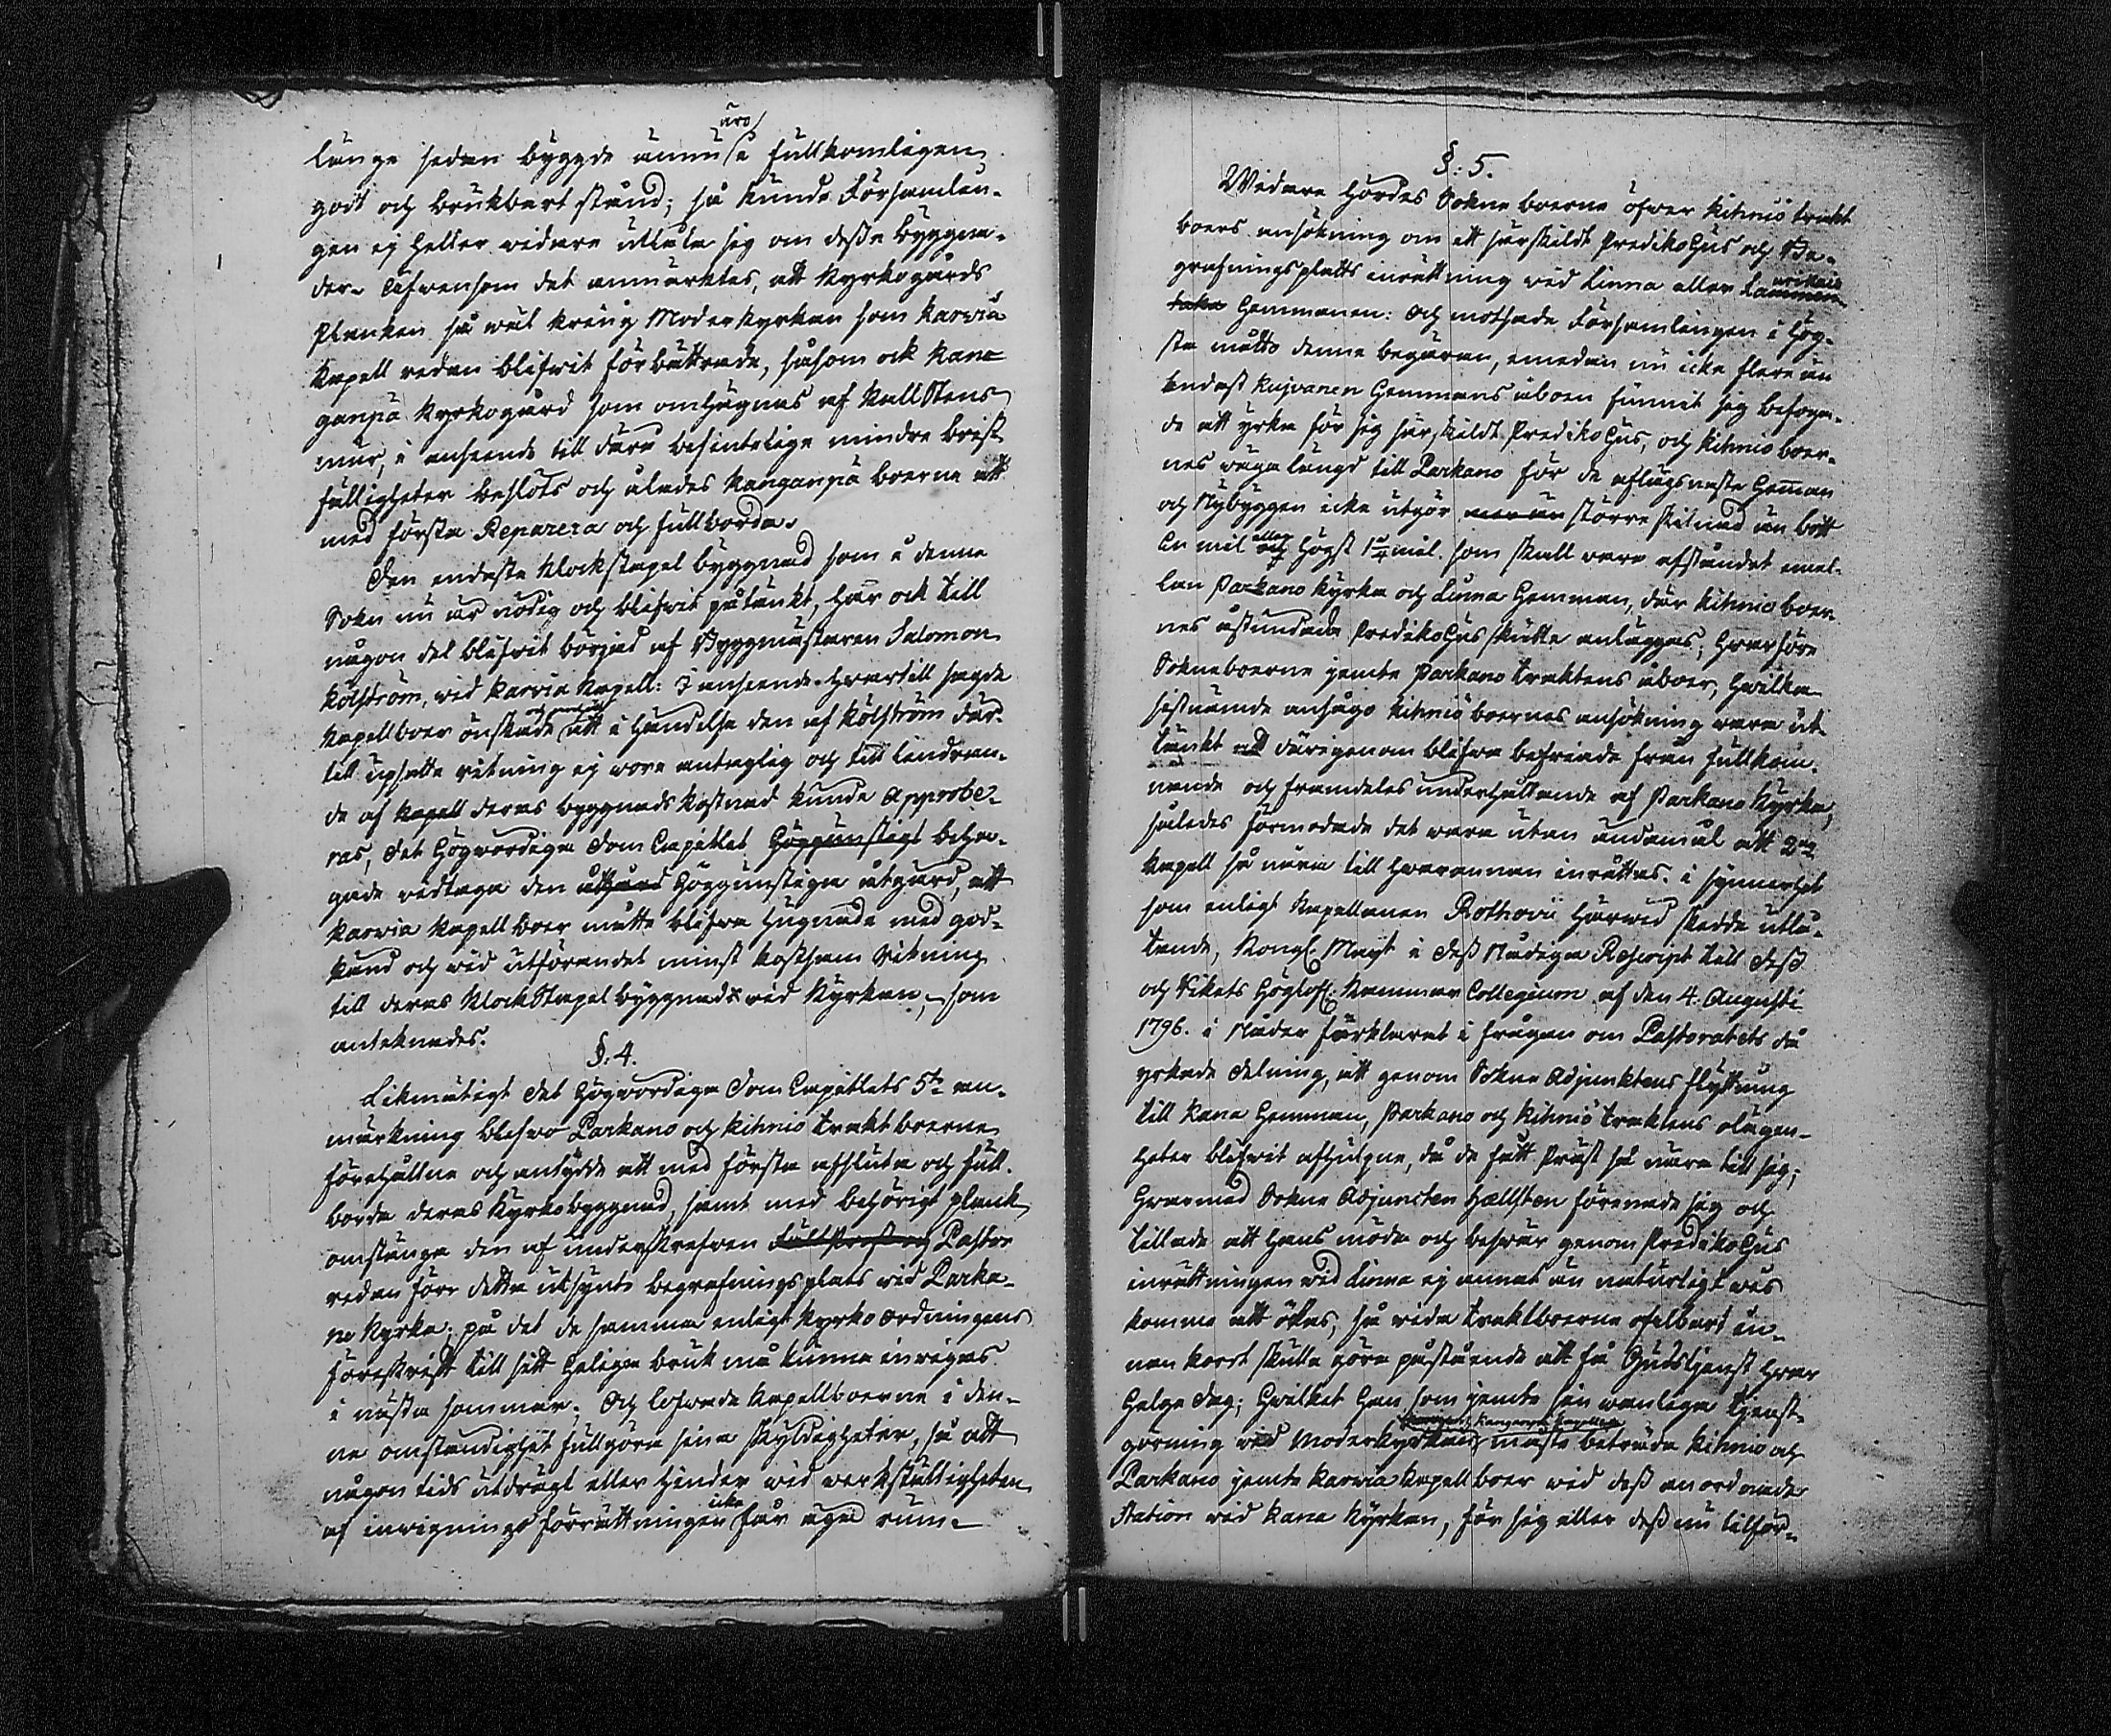 äro
länge sedan byggde ännu i fullkomligen
godt och brukbart stånd; så kunde Församlin-
gen ej heller widare utlåta sig om dessa byggna-
der. Äfwensom det anmärktes, att Kyrkogårds
Planken så wäl kring Moderkyrkan som Karvia
Kapell redan blifwit förbättrade, såsom ock Kana
ganpä Kyrkogård som omhägnas af Kall Stens
mur, i anseende till dära befintelige mindre brist
fälligheter beslöts och ålades Kanganpä boerne att
med första Reparera och fullborda.
Den endaste Klockstapel byggnad som i denna
Sokn nu är nödig och blifwit påtänkt, har ock till
någon del blifwit börjad af Byggmästaren Salomon
Kölström, wid Karvia Kapell: I anseende hwartill sagde
Kapellboer önskade att i händelse den af Kölström där-
till upsatte ritning ej wore antaglig och till lindran-
de af Kapell deras byggnads kostnad kunde Approbe-
ras, det Högwördiga Dom Capitlet Höggunstigt beha-
gade widtaga den åtgärd Höggunstiga åtgärd, att
Karvia Kapell boer måtte blifwa hugnade med god-
känd och wid utförandet minst kostsam ritning
till deras Klock Stapel byggnad wid Kyrkan, som
anteknades.
§. 4.
Likmätigt det Högwördiga Dom Capitlets 5te an-
märkning blefwo Parkano och Kihniö trakt boerne
förehållne och antydde att med första afsluta och full-
borda deras Kyrkobyggnad, samt med behörigt plank
omstänga den af underskrefwen Pastor
redan före detta utsynte begrafningsplats wid Parka-
no Kyrka; på det de samma enligt Kyrko ordningens
föreskrift till sitt heliga bruk må kunna inwigas
i nästa sommar; Och lofwade Kapellboerne i den-
na omständighet fullgöra sina skyldigheter, så att
någon tids utdrägt eller hinder wid werkställigheten
af inwignings förrättningen icke får äga rum.

§: 5.
Widare hördes Sokneboerne öfwer Kihniö trakt
boers ansökning om ett särskildt Predikohus och Be-
grafningsplatts inrättning wid Linna eller
Hemmanen: Och motsade Församlingen i hög-
sta måtto denna begäran, emedan nu icke flere än
endast Kujvanen Hemmans åboen funnit sig befoga-
de att yrka för sig särskildt Predikohus, och Kihniö boer-
nes wäga längd till Parkano för de aflägsnaste Heman
och Nybyggen icke utgör större skilnad än blott
En mil eller högst 1 1/4 mil. som skall wara afståndet mel-
lan Parkano Kyrka och Linna Hemman, där Kihniö boer-
nes åstundade Predikohus skulle anläggas; hwarföre
Sokneboerne jemte Parkano tracktens åboer, hwilka
sistnämde ansågo Kihniö boernes ansökning wara ut-
tänkt at därigenom blifwa befriade från fullkom-
nande och framdeles underhållande af Parkano Kyrka,
således förmodade det wara utan ändamål att 2ne
Kapell så nära till hwarannan inrättas. i synnerhet
som enligt Kapellanen Rothovii härwid skedda utlå-
tande, Kongl. Majt i dess Nådiga Rescript till dess
och Rikets Höglofl. Kammar Collegium af den 4. Augusti
1796. i Nåder förklarat i frågan om Pastoratets då
yrkade delning, att genom Sokne Adjunktens flyttning
till Kana Hemman, Parkano och Kihniö tracktens olägen-
heter blifwit afhulpne, då de fått Präst så nära till sig;
Hwarmed Sokne Adjuncten Hællsten förenade sig och
tillade att hans möda och beswär genom Predikohus
inrättningen wid Linna ej annat än naturligt wis
komma att ökas; så wida traktboerne ofelbart in-
nan kort skulle göra påstående att få Gudstjenst hwar
Helge dag; hwilket han som jemte sin wanliga tjenst-
göring wid Moderkyrkan måste beträda Kihniö och
Parkano jemte Karvia Kapell boer wid dess anordnade
Station wid Kana Kyrkan, för sig eller dess nu tilför-